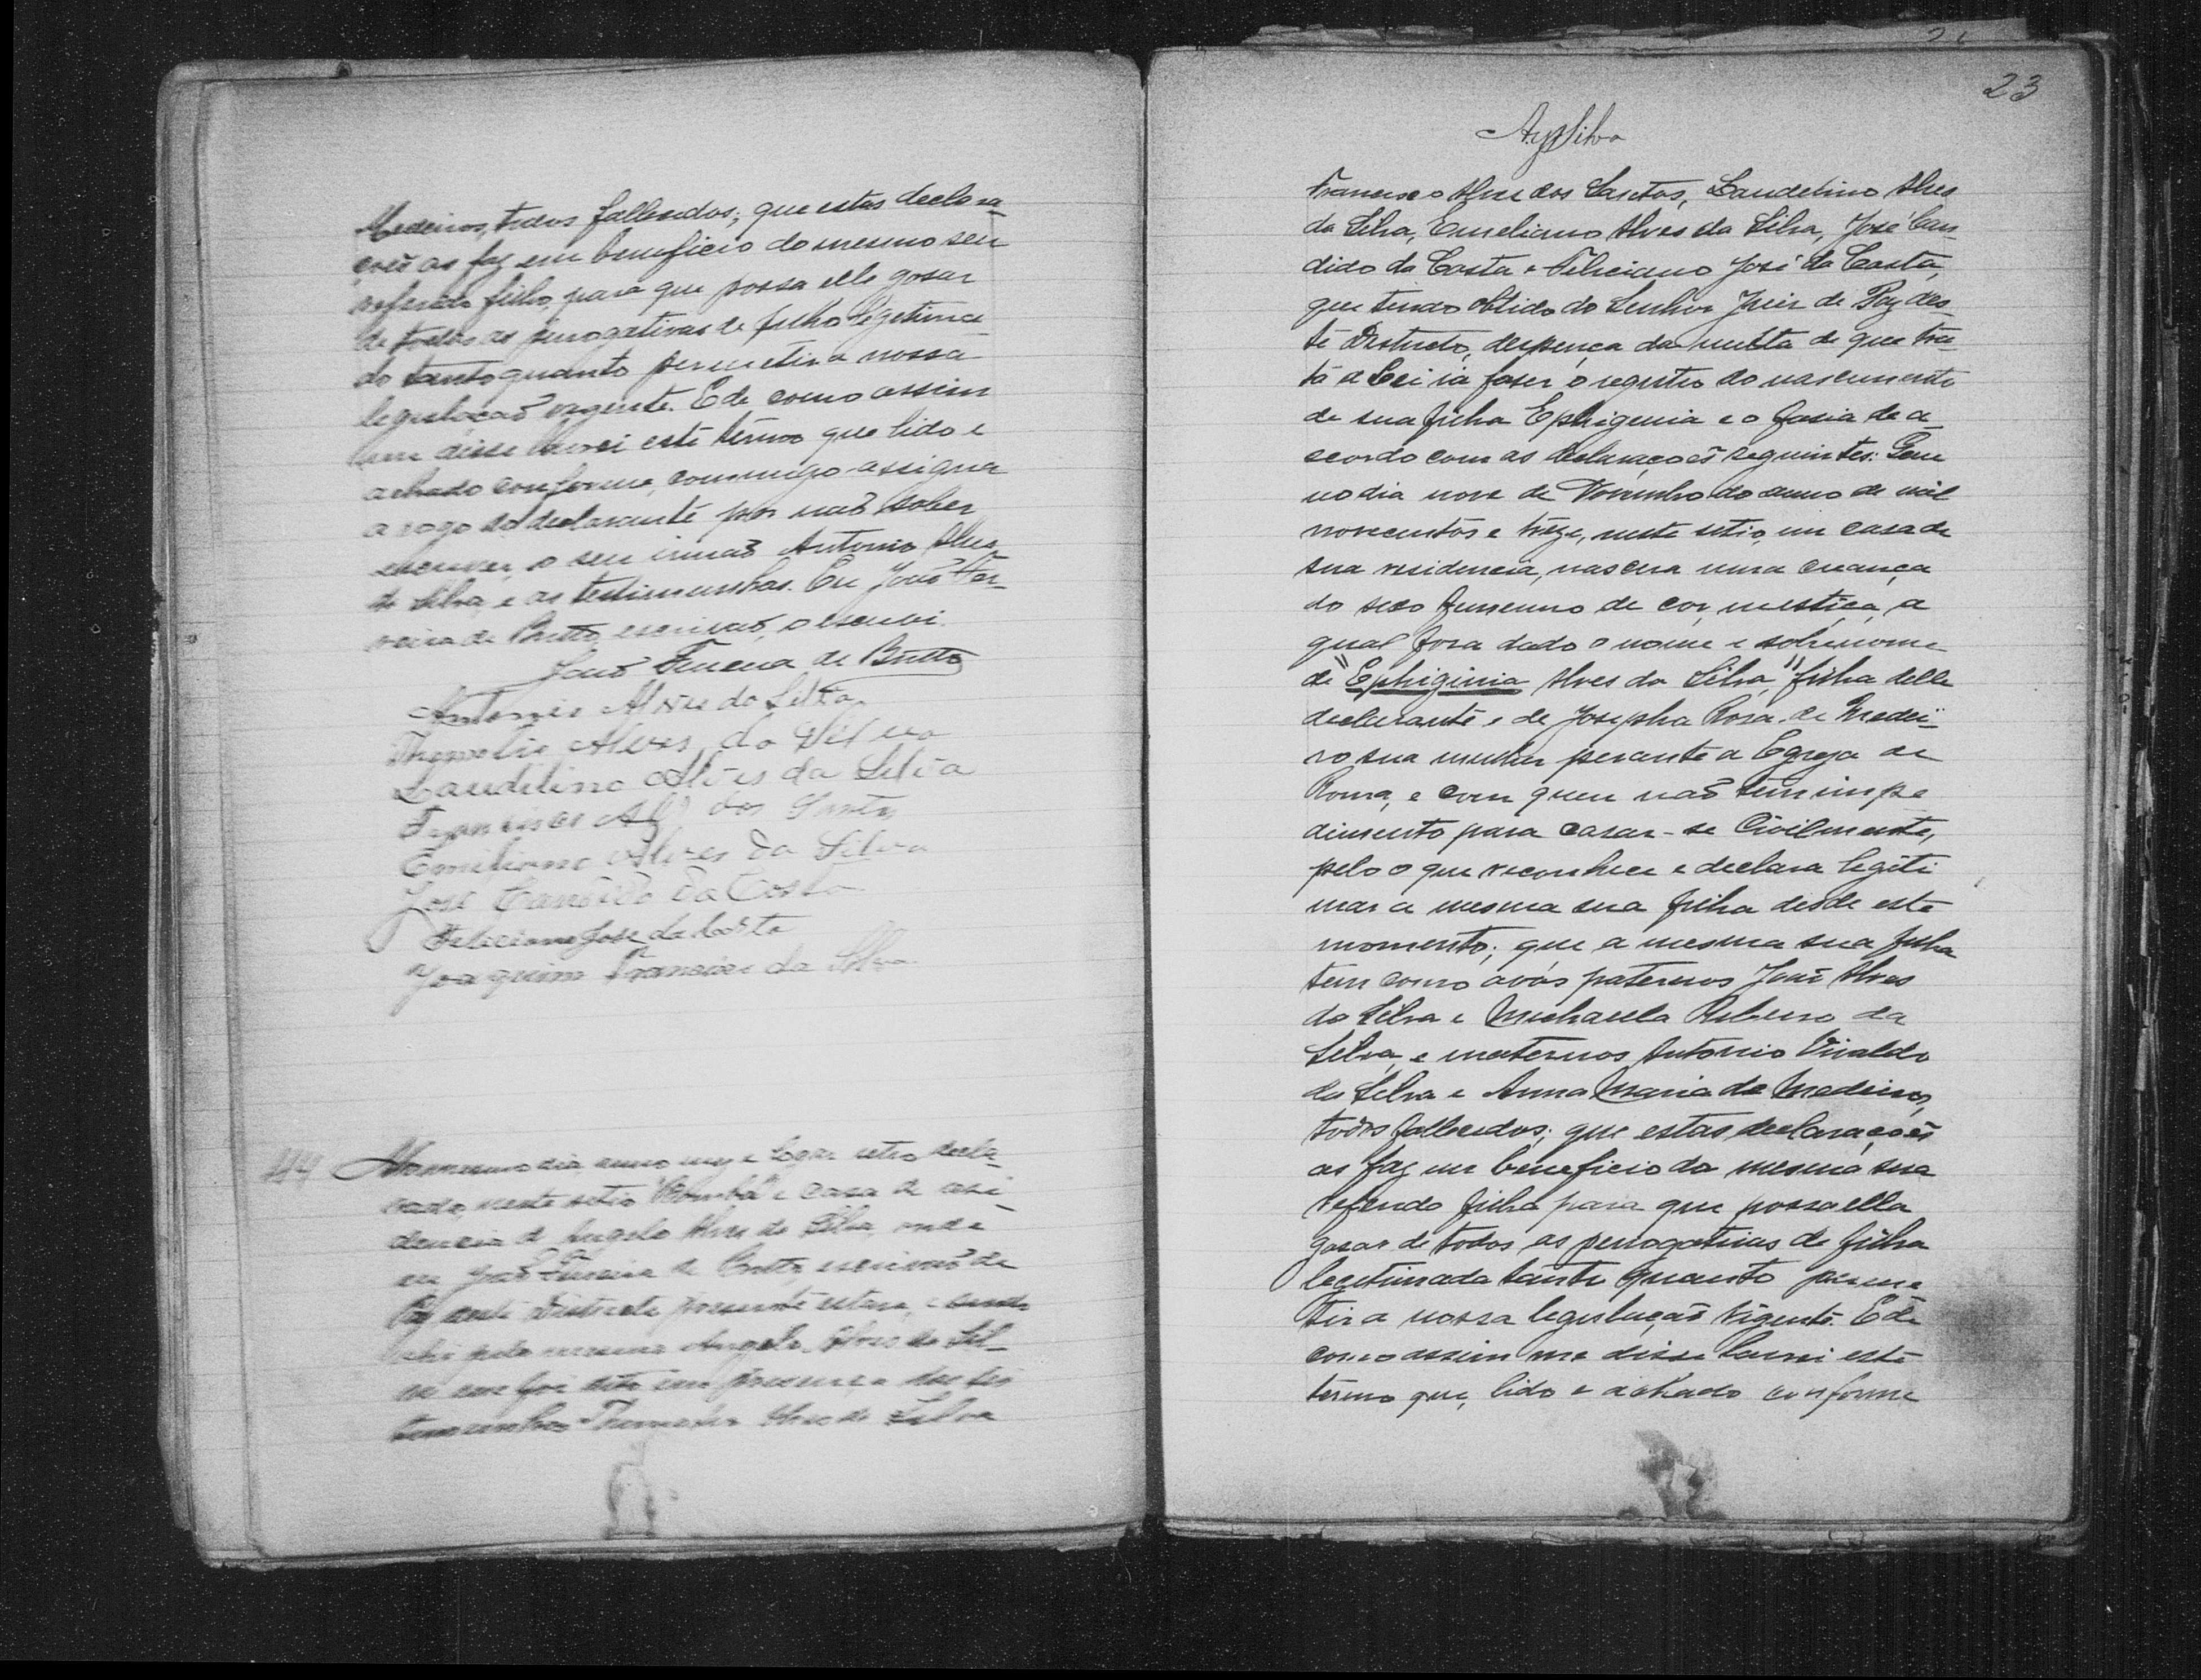 Medeiros, todos fallecidos; que estas declara-
ções as faz em beneficio do mesmo seu
referido filho, para que possa elle gosar
de todas as perrogativas de filho legitima-
do tanto quanto permetir a nossa
legislação vigente. E de como assim
me disse lavrei este termo que lido e
achado conforme, commigo assigna
a rogo do declarante por não saber
escrever, o seu irmão Antonio Alves
da Silva e as testimunhas. Eu João Fer-
reira de Britto escrivão, o escrevi.
João Ferreira de Britto
Antonio Alves da Silva
Alves da Silva
Laudelino Alves da Silva
Francisco Alz dos Santos
Emiliano Alves da Silva
José Candido da Costa
Feliciano Jose da Costa
Joaquim Francisco da Silva
44 No mesmo dia, anno mez e logar retro decla-
rado, neste sitio e casa de resi-
dencia de Angelo Alves da Silva, onde
eu João Ferreira de Britto, escrivão de
Paz deste Districto presente estava, e sendo
ahi pelo mesmo Angelo Alves da Sil-
va me foi dito em presença das tes
temunhas Alves da Silva
23
AySilva
Francisco Alves dos Santos, Laudelino Alves
da Silva, Emeliano Alves da Silva, José Can-
dido da Costa e Feliciano José da Costa,
que tendo obtido do Senhor Juiz de Paz des-
te Districto, despença da multa de que tra-
ta a Lei ia faser o registro do nascimento
de sua filha Ephigenia e o fasia de a-
cordo com as declarações seguintes: Que
no dia nove de Novembro do anno de mil
novecentos e treze, neste sitio, em casa de
sua residencia, nascera uma creança
do sexo femenino de cor, mestiça, a
qual fora dado o nome e sobrenome
de "Ephiginia Alves da Silva," filha delle
declarante e de Josepha Rosa de Medei-
ro sua mulher perante a Egreja de
Roma, e com quem não tem impe
dimento para casar-se Civilmente,
pelo o que reconhece e declara legiti
mar a mesma sua filha desde este
momento; que a mesma sua filha
tem como avós paternos José Alves
da Silva e Michaella Ribeiro da
Silva, e maternos Antonio Vivaldo
da Silva e Anna Maria de Medeiros,
todos fallecidos; que estas declarações
as faz em beneficio da mesma sua
referida filha para que possa ella
gosar de todas as perrogativas de filha
legitimada tanto quanto perme
tir a nossa legislação vigente. E de
como assim me disse lavrei este
termo que, lido e achado conforme